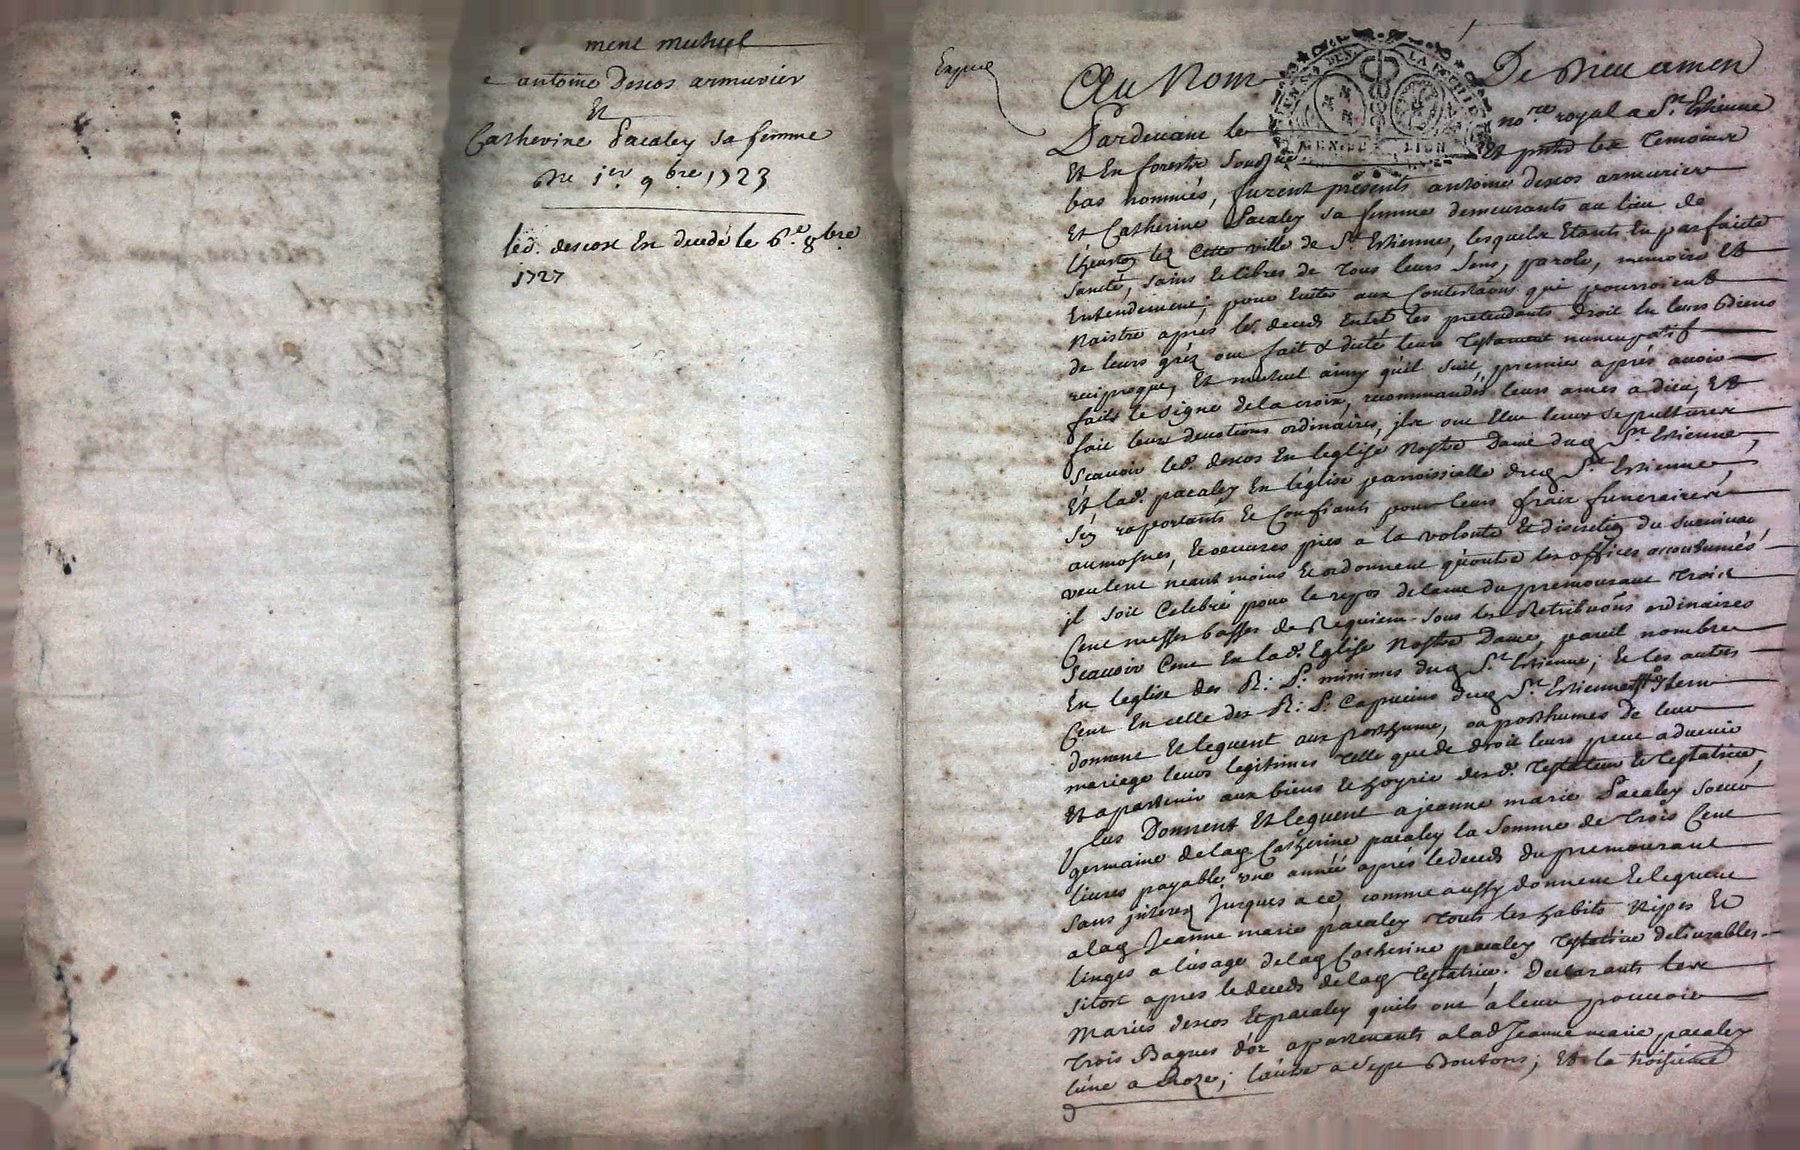 ment mutuel
e antoine Descos armurier
Et
Catherine Pacaley sa femme
Du 1er 9bre 1723
led. descos En decedé le 6e 8bre
1727
Au Nom De Dieu amen
Pardevant le nore royal a St. Estienne
Et En forestz Soussigné Et present les Temoins
bas nommés, furent présents antoine descos armurier
Et Catherine Pacaley sa femme demeurants au lieu de
lez Cette ville de St. Estienne, lesquels Etants En parfaite
santé, sains Et libres de Tous leurs Sens, parole, memoire Et
Entendement; pour Eviter aux Contestaons qui pourroient
Naistre apres le deceds Entre les pretendants Droit En leurs Biens
de leurs gréz ont fait & dicté leur Testament nuncupatif
reciproque, Et mutuel ainsy quil suit, premier aprés avoir
fait le signe de la croix, recommandé leurs ames a dieu, Et
fait leurs devotions ordinaires, jls ont Elue leurs sepultures
Scavoir led. descos En leglise Nostre Dame dud. St. Estienne,
Et lad. pacaley En léglise parroissialle dud. St. Estienne,
S'en raportants Et Confiants pour leurs fraix funeraires
aumosnes, Et oeuvres pies a la volonté Et discretion du survivant,
veulent neantmoins Et ordonnent qu'outre les offices accoutumés
jl soit Celebré pour le repos de lame du premourant Trois
Cent messes basses de Requiem sous les Retribuons ordinaires
Scavoir Cent En lad. Eglise Nostre Dame, pareil nombre
En leglise des R: P: minimes dud. St. Estienne; Et les autres
Cent En celle des R: P: Capucins dud. St. Estienne Item
donnent Et leguent aux posthume, ou posthumes de leur
mariage leurs legitimes Telle que de droit leurs peut advenir
Et apartenir aux biens Et hoyrie desd. Testateur Et Testatrice,
Plus Donnent Et leguent a jeanne marie Pacaley Soeur
germaine de lad. Catherine pacaley la Somme de Trois Cent
livres payable une année aprés le deceds du premourant
sans jnterez jusques a ce, comme aussy donnent Et leguent
a lad. Jeanne marie pacaley Touts les habits Nipes Et
linges a l'usage de lad. Catherine pacaley Testatrice delivrables
sitost apres le deceds de lad. Testatrice. Declarants les
Mariés descos Et pacaley quils ont à leur pouvoir
Trois Bagues d'or apartenants a lad. Jeanne marie pacaley
lúne a Roze; láutre a Sept Boutons; Et la troisieme